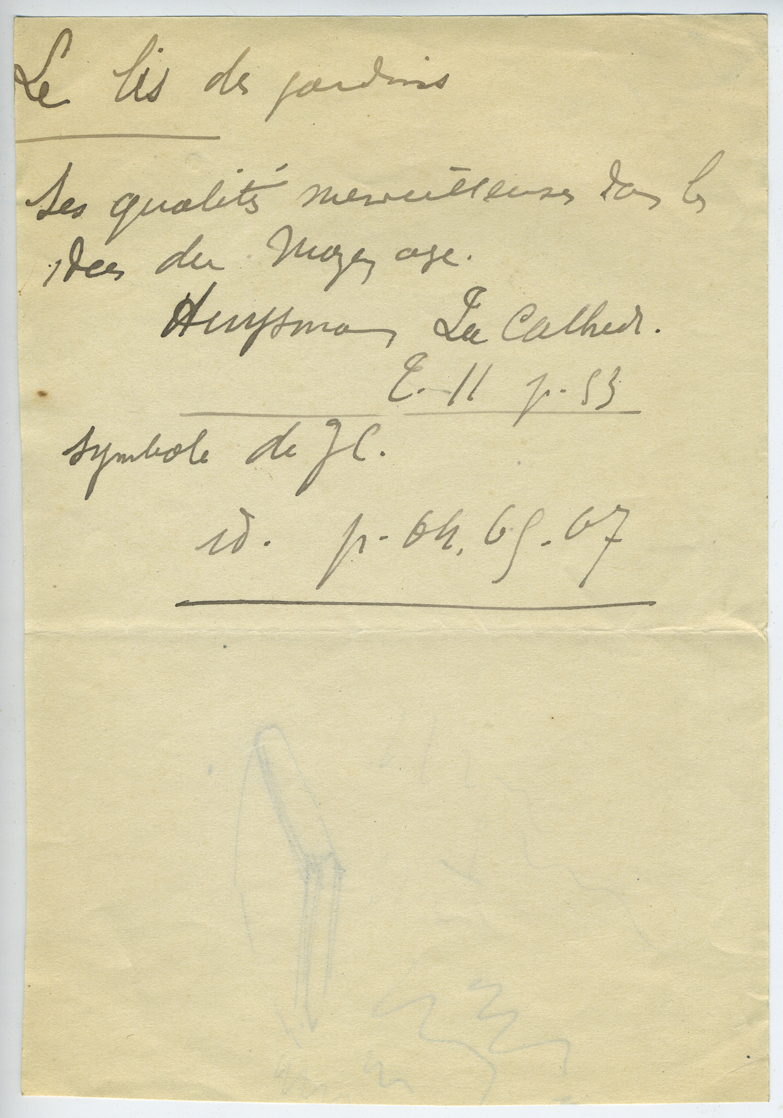 Le lis des jardins
Ses qualités merveilleuses dans les
idées du Moyen age.
Huysmans La Cathedr.
T. II p. 53
symbole de J C.
id. p. 64, 65. 67